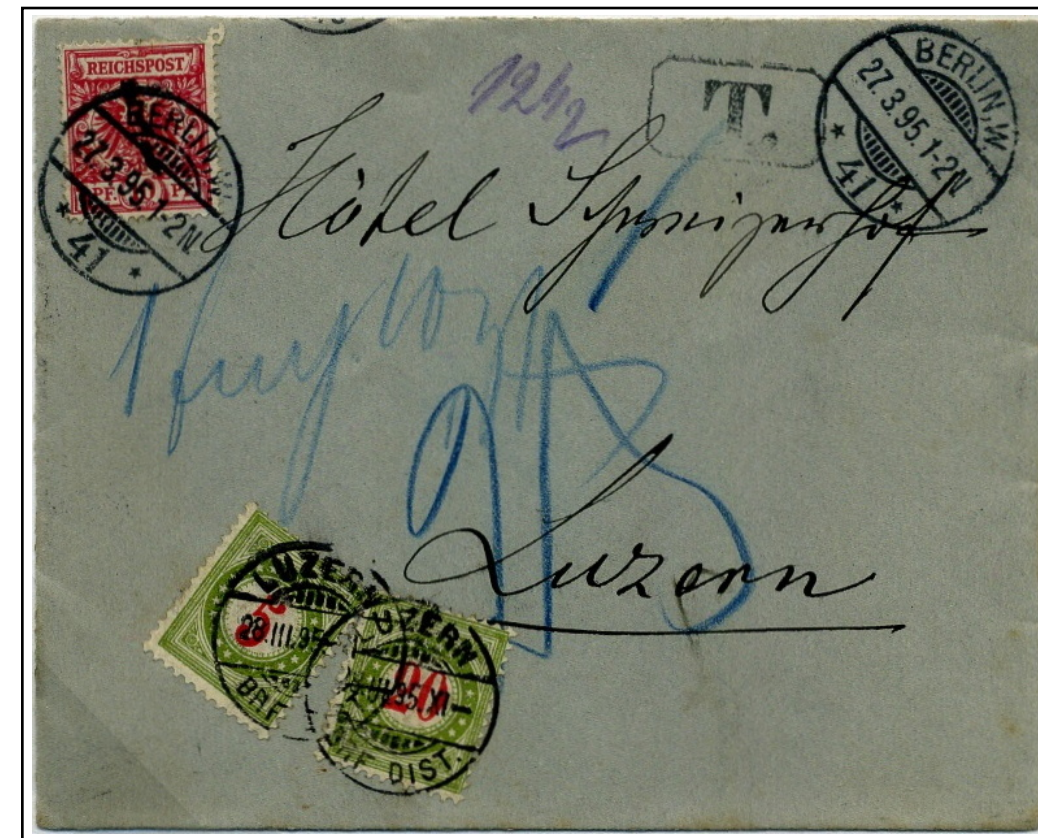 REICHSPOST
PF. 10 PF.
BERLIN, W.
27.3.95.1-2N
* 41 *
12½
T.
BERLIN, W
27.3.95.1-2N
* 41 *
Hôtel Schweizerhof
25
Luzern
5
LUZERN
28.III.95
BRF
20
LUZERN
III.95.XI
BRF DIST.